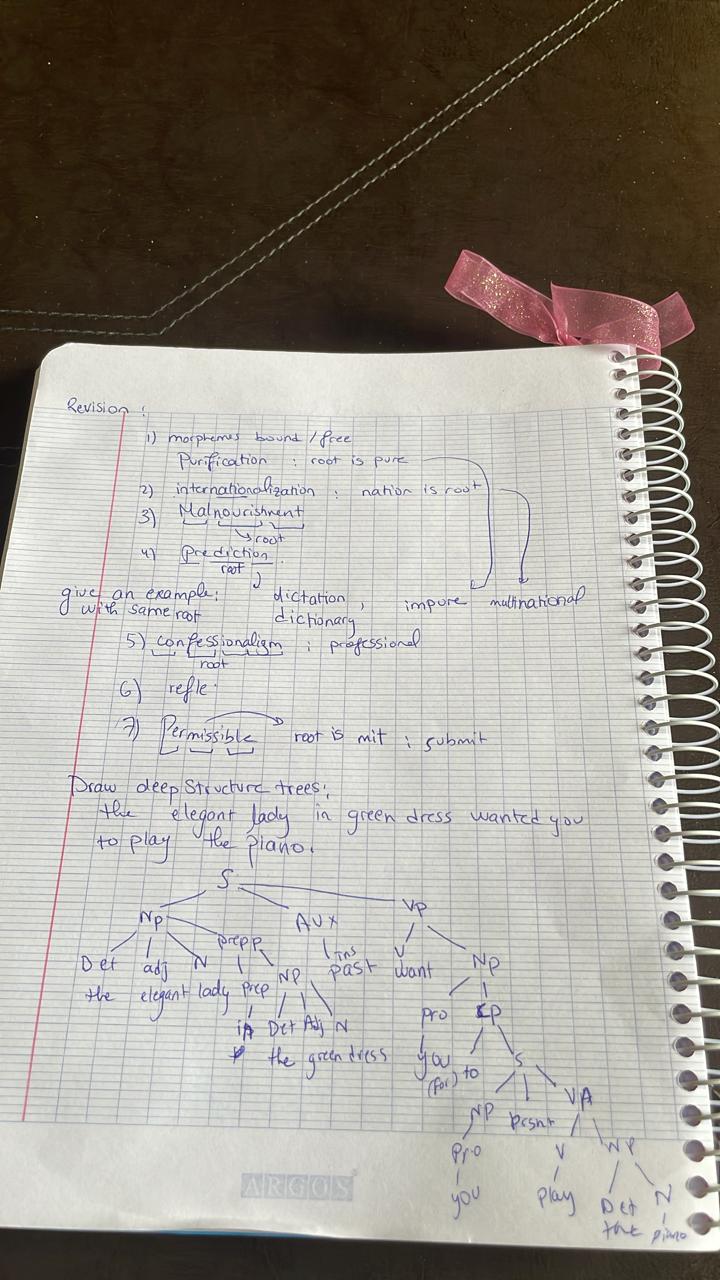 Revision :
1) morphemes bound / free
Purification : root is pure
2) internationalization : nation is root
3) Malnourishment
root
4) Prediction
root
give an example : dictation , impure multinational
with same root dictionary
5) confessionalism : professional
root
6) refle
7) Permissible root is mit : submit
Draw deep structure trees :
the elegant lady in green dress wanted you
to play the piano.
S
Np AUX Vp
prepp
Det adj N NP tns past V want Np
the elegant lady prep pro CP
in Det Adj N you
the green dress (for) to S
NP prsnt VA
Pro V NP
you play Det N
the piano
ARGOS